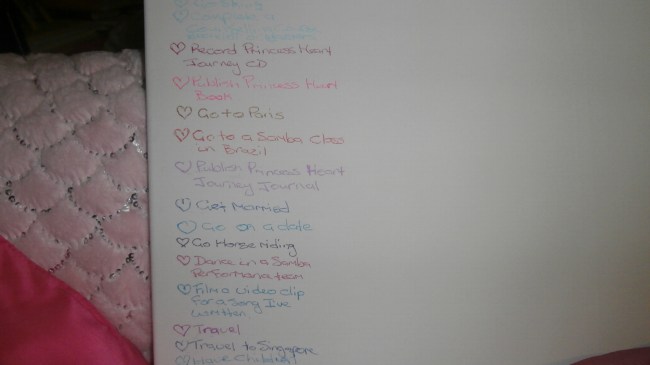 Go Skiing
Complete a
Record Princess Heart
Journey CD
Publish Princess Heart
Book
Go to Paris
Go to a Samba Class
in Brazil
Publish Princess Heart
Journey Journal
Get Married
Go on a date
Go Horse riding
Dance in a Samba
Performance team
Film a Video Clip
for a Song I've
written
Travel
Travel to Singapore
Have Children